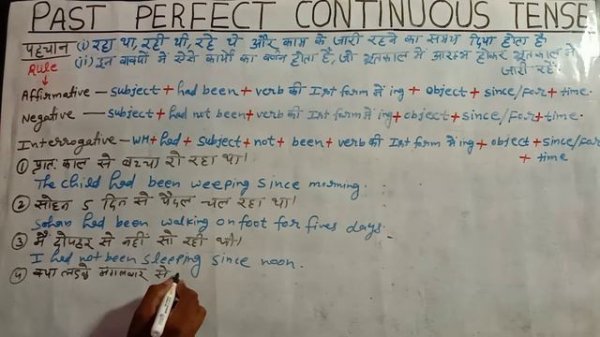 PAST PERFECT CONTINUOUS TENSE
पहचान (i) रहा था, रही थी, रहे थे और काम के जारी रहने का समय दिया होता है
(ii) इन वाक्यों में ऐसे कार्यों का वर्णन होता है, जो भूतकाल में आरम्भ होकर भूतकाल में
जारी रहे
Rule
Affirmative — subject + had been + verb की Ist form में ing + object + since/for + time.
Negative — subject + had not been + verb की Ist form में ing + object + since/for + time.
Interrogative — WH + had + subject + not + been + verb की Ist form में ing + object + since/for
+ time
① प्रात काल से बच्चा रो रहा था।
The child had been weeping since morning.
② सोहन 5 दिन से पैदल चल रहा था।
Sohan had been walking on foot for fives days.
③ मैं दोपहर से नहीं सो रही थी।
I had not been sleeping since noon.
④ क्या लड़के मंगलवार से